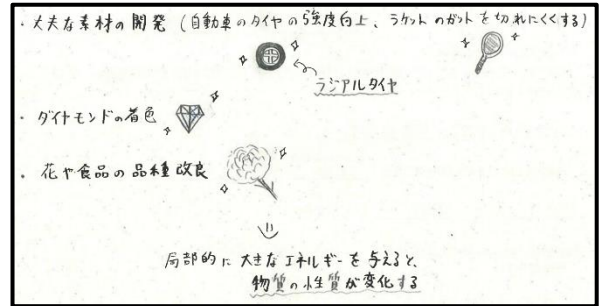 ・丈夫な素材の開発（自動車のタイヤの強度向上、ラケットのガットを切れにくくする）
ラジアルタイヤ
・ダイヤモンドの着色
・花や食品の品種改良
局部的に大きなエネルギーを与えると、
物質の性質が変化する